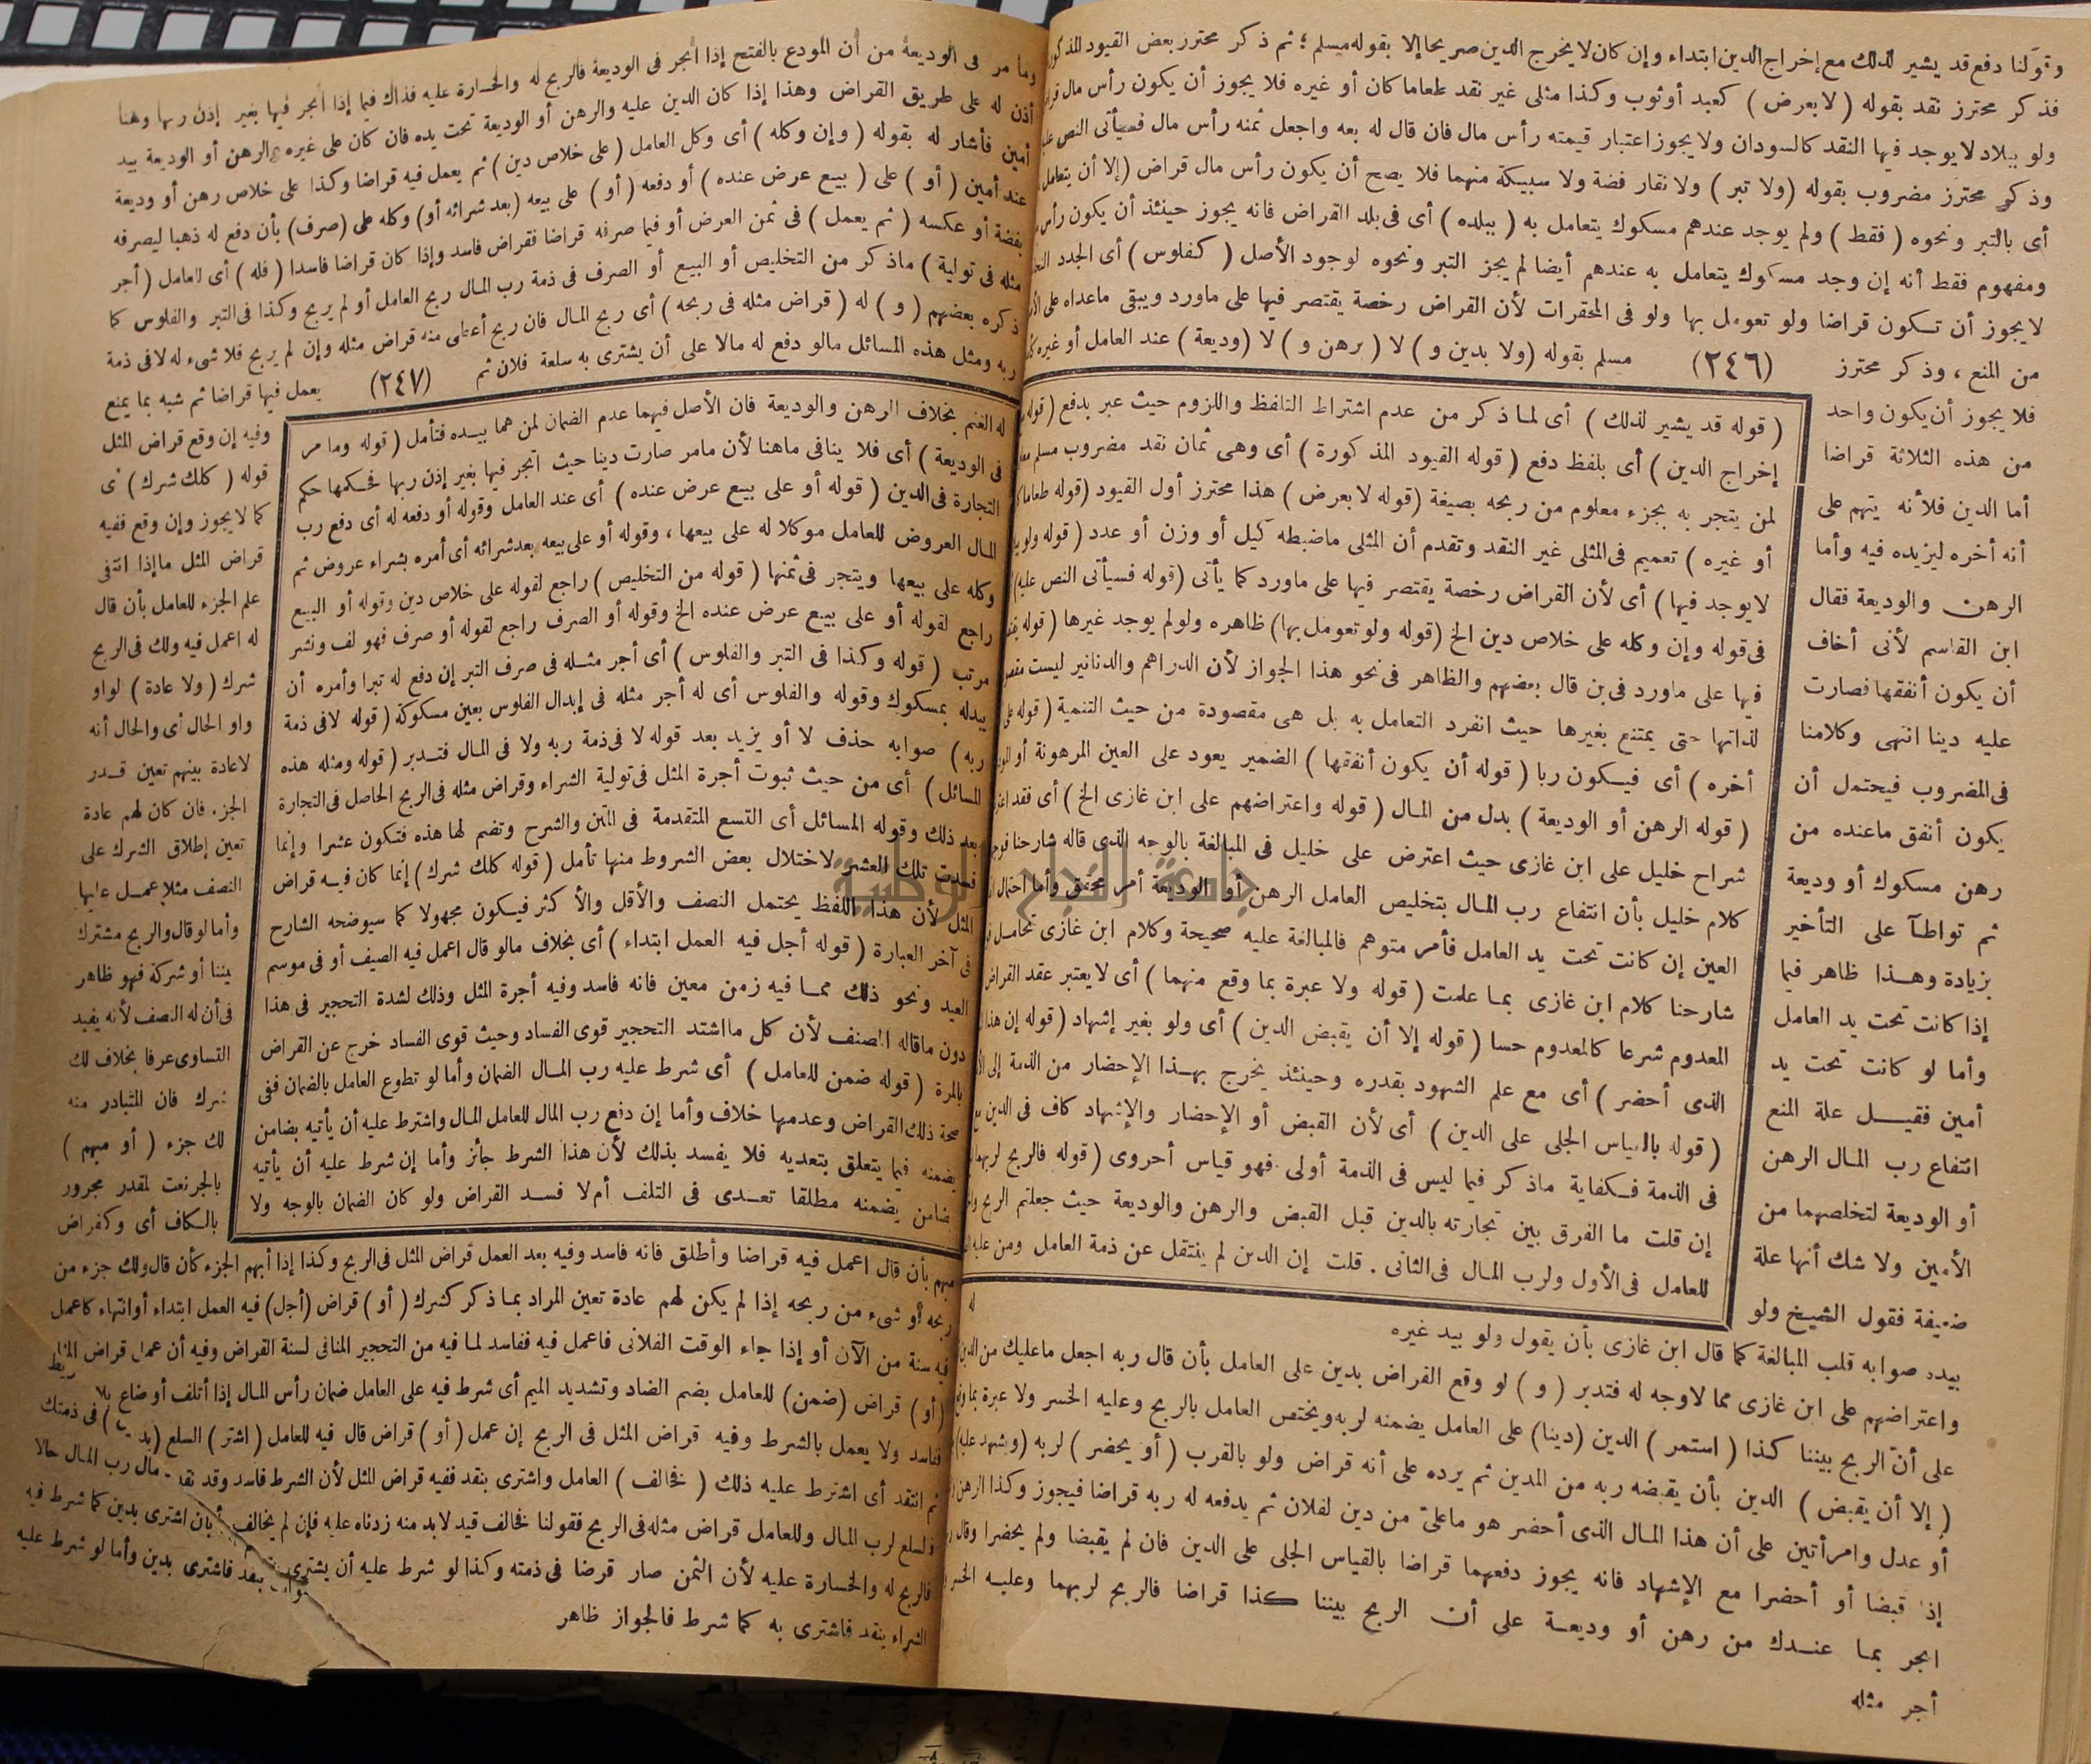 وقولنا دفع قد يشير لذلك مع إخراج الدين ابتداء وإن كان لا يخرج الدين صريحا إلا بقوله مسلم ؛ ثم ذكر محترز بعض القيود
فذكر محترز نقد بقوله ( لا بعرض ) كعبد أو ثوب وكذا مثلى غير نقد طعاما كان أو غيره فلا يجوز أن يكون رأس مال
ولو ببلاد لا يوجد فيها النقد كالسودان ولا يجوز اعتبار قيمته رأس مال فان قال له بعه واجعل ثمنه رأس مال فسيأتى النص
وذكر محترز مضروب بقوله ( ولا تبر ) ولا نقار فضة ولا سبيكة منهما فلا يصح أن يكون رأس مال قراض ( إلا أن يتعامل
أى بالتبر ونحوه ( فقط ) ولم يوجد عندهم مسكوك يتعامل به ( ببلده ) أى فى بلد القراض فانه يجوز حينئذ أن يكون رأس
ومفهوم فقط أنه إن وجد مسكوك يتعامل به عندهم أيضا لم يجز التبر ونحوه لوجود الأصل ( كفلوس ) أى الجدد
لا يجوز أن تكون قراضا ولو تعومل بها ولو فى المحقرات لأن القراض رخصة يقتصر فيها على ماورد ويبقى ماعداه على
من المنع ، وذكر محترز (٢٤٦) مسلم بقوله ( ولا بدين و ) لا ( برهن و ) لا ( وديعة ) عند العامل أو غيره
فلا يجوز أن يكون واحد
من هذه الثلاثة قراضا
أما الدين فلأنه يتهم على
أنه أخره ليزيده فيه وأما
الرهن والوديعة فقال
ابن القاسم لأنى أخاف
أن يكون أنفقها فصارت
عليه دينا انتهى وكلامنا
فى المضروب فيحتمل أن
يكون أنفق ماعنده من
رهن مسكوك أو وديعة
ثم تواطآ على التأخير
بزيادة وهذا ظاهر فيما
إذا كانت تحت يد العامل
وأما لو كانت تحت يد
أمين فقيل علة المنع
انتفاع رب المال الرهن
أو الوديعة لتخلصهما من
الأمين ولا شك أنها علة
ضعيفة فقول الشيخ ولو
بيده صوابه قلب المبالغة كما قال ابن غازى بأن يقول ولو بيد غيره
واعتراضهم على ابن غازى مما لاوجه له فتدبر ( و ) لو وقع القراض بدين على العامل بأن قال ربه اجعل ماعليك من
على أن الربح بيننا كذا ( استمر ) الدين ( دينا ) على العامل يضمنه لربه ويختص العامل بالربح وعليه الخسر ولا عبرة
( إلا أن يقبض ) الدين بأن يقبضه ربه من المدين ثم يرده على أنه قراض ولو بالقرب ( أو يحضر ) لربه ( ويشهد عليه )
أو عدل وامرأتين على أن هذا المال الذى أحضر هو ماعلىّ من دين لفلان ثم يدفعه له ربه قراضا فيجوز وكذا الرهن
إذا قبضا أو أحضرا مع الإشهاد فانه يجوز دفعهما قراضا بالقياس الجلى على الدين فان لم يقبضا ولم يحضرا وقال
اتجر بما عندك من رهن أو وديعة على أن الربح بيننا كذا قراضا فالربح لربهما وعليه
أجر مثله
( قوله قد يشير لذلك ) أى لما ذكر من عدم اشتراط التلفظ واللزوم حيث عبر بدفع ( قوله
إخراج الدين ) أى بلفظ دفع ( قوله القيود المذكورة ) أى وهى ثمان نقد مضروب مسلم
لمن يتجر به بجزء معلوم من ربحه بصيغة ( قوله لا بعرض ) هذا محترز أول القيود ( قوله طعاما
أو غيره ) تعميم فى المثلى غير النقد وتقدم أن المثلى ماضبطه كيل أو وزن أو عدد ( قوله
لا يوجد فيها ) أى لأن القراض رخصة يقتصر فيها على ماورد كما يأتى ( قوله فسيأتى النص عليه )
فى قوله وإن وكله على خلاص دين الخ ( قوله ولو تعومل بها ) ظاهره ولو لم يوجد غيرها ( قوله
فيها على ماورد فى بن قال بعضهم والظاهر فى نحو هذا الجواز لأن الدراهم والدنانير ليست
لذاتها حتى يمتنع بغيرها حيث انفرد التعامل به بل هى مقصودة من حيث التنمية ( قوله
أخره ) أى فيكون ربا ( قوله أن يكون أنفقها ) الضمير يعود على العين المرهونة أو
( قوله الرهن أو الوديعة ) بدل من المال ( قوله واعتراضهم على ابن غازى الخ ) أى فقد
شراح خليل على ابن غازى حيث اعترض على خليل فى المبالغة بالوجه الذى قاله شارحنا
كلام خليل بأن انتفاع رب المال بتخليص العامل الرهن أو الوديعة أمر محقق وأما احتمال
العين إن كانت تحت يد العامل فأمر متوهم فالمبالغة عليه صحيحة وكلام ابن غازى تحامل
شارحنا كلام ابن غازى بما علمت ( قوله ولا عبرة بما وقع منهما ) أى لا يعتبر عقد القراض
المعدوم شرعا كالمعدوم حسا ( قوله إلا أن يقبض الدين ) أى ولو بغير إشهاد ( قوله إن هذا
الذى أحضر ) أى مع علم الشهود بقدره وحينئذ يخرج بهذا الإحضار من الذمة إلى
( قوله بالقياس الجلى على الدين ) أى لأن القبض أو الإحضار والإشهاد كاف فى الدين
فى الذمة فكفاية ماذكر فيما ليس فى الذمة أولى فهو قياس أحروى ( قوله فالربح لربهما
إن قلت ما الفرق بين تجارته بالدين قبل القبض والرهن والوديعة حيث جعلتم الربح
للعامل فى الأول ولرب المال فى الثانى . قلت إن الدين لم ينتقل عن ذمة العامل ومن عليه
له
وما مر فى الوديعة من أن المودع بالفتح إذا اتجر فى الوديعة فالربح له والخسارة عليه فذاك فيما إذا اتجر فيها بغير إذن ربها وهنا
أذن له على طريق القراض وهذا إذا كان الدين عليه والرهن أو الوديعة تحت يده فان كان على غيره والرهن أو الوديعة بيد
أمين فأشار له بقوله ( وإن وكله ) أى وكل العامل ( على خلاص دين ) ثم يعمل فيه قراضا وكذا على خلاص رهن أو وديعة
عند أمين ( أو ) على ( بيع عرض عنده ) أو دفعه ( أو ) على بيعه ( بعد شرائه أو ) وكله على ( صرف ) بأن دفع له ذهبا ليصرفه
بفضة أو عكسه ( ثم يعمل ) فى ثمن العرض أو فيما صرفه قراضا فقراض فاسد وإذا كان قراضا فاسدا ( فله ) أى للعامل ( أجر
مثله فى تولية ) ماذكر من التخليص أو البيع أو الصرف فى ذمة رب المال ربح العامل أو لم يربح وكذا فى التبر والفلوس كما
ذكره بعضهم ( و ) له ( قراض مثله فى ربحه ) أى ربح المال فان ربح أعطى منه قراض مثله وإن لم يربح فلا شىء له لا فى ذمة
ربه ومثل هذه المسائل مالو دفع له مالا على أن يشترى به سلعة فلان ثم (٢٤٧) يعمل فيها قراضا ثم شبه بما يمنع
وفيه إن وقع قراض المثل
قوله ( كلك شرك ) أى
كما لا يجوز وإن وقع ففيه
قراض المثل ماإذا انتفى
علم الجزء للعامل بأن قال
له اعمل فيه ولك فى الربح
شرك ( ولا عادة ) الواو
واو الحال أى والحال أنه
لا عادة بينهم تعين قدر
الجزء فان كان لهم عادة
تعين إطلاق الشرك على
النصف مثلا عمل عليها
وأما لو قال والربح مشترك
بيننا أو شركة فهو ظاهر
فى أن له النصف لأنه يفيد
التساوى عرفا بخلاف لك
شرك فان المتبادر منه
لك جزء ( أو مبهم )
بالجر نعت لمقدر مجرور
بالكاف أى وكقراض
مبهم بأن قال اعمل فيه قراضا وأطلق فانه فاسد وفيه بعد العمل قراض المثل فى الربح وكذا إذا أبهم الجزء كأن قال ولك جزء من
ربحه أو شىء من ربحه إذا لم يكن لهم عادة تعين المراد بما ذكر كشرك ( أو ) قراض ( أجل ) فيه العمل ابتداء أو انتهاء كاعمل
فيه سنة من الآن أو إذا جاء الوقت الفلانى فاعمل فيه ففاسد لما فيه من التحجير المنافى لسنة القراض وفيه أن عمل قراض المثل
( أو ) قراض ( ضمن ) للعامل بضم الضاد وتشديد الميم أى شرط فيه على العامل ضمان رأس المال إذا أتلف أو ضاع بلا
ففاسد ولا يعمل بالشرط وفيه قراض المثل فى الربح إن عمل ( أو ) قراض قال فيه للعامل ( اشتر ) السلع فى ذمتك
ثم انتقد أى اشترط عليه ذلك ( فخالف ) العامل واشترى بنقد ففيه قراض المثل لأن الشرط فاسد وقد نقد مال رب المال حالا
فالسلع لرب المال وللعامل قراض مثله فى الربح فقولنا فخالف قيد لابد منه زدناه عليه فإن لم يخالف بأن اشترى بدين كما شرط فيه
فالربح له والخسارة عليه لأن الثمن صار قرضا فى ذمته وكذا لو شرط عليه أن يشترى بنقد فاشترى بدين وأما لو شرط عليه
الشراء بنقد فاشترى به كما شرط فالجواز ظاهر
له الغنم بخلاف الرهن والوديعة فان الأصل فيهما عدم الضمان لمن هما بيده فتأمل ( قوله وما مر
فى الوديعة ) أى فلا ينافى ماهنا لأن مامر صارت دينا حيث اتجر فيها بغير إذن ربها فحكمها حكم
التجارة فى الدين ( قوله أو على بيع عرض عنده ) أى عند العامل وقوله أو دفعه له أى دفع رب
المال العروض للعامل موكلا له على بيعها ، وقوله أو على بيعه بعد شرائه أى أمره بشراء عروض ثم
وكله على بيعها ويتجر فى ثمنها ( قوله من التخليص ) راجع لقوله على خلاص دين وقوله أو البيع
راجع لقوله أو على بيع عرض عنده الخ وقوله أو الصرف راجع لقوله أو صرف فهو لف ونشر
مرتب ( قوله وكذا فى التبر والفلوس ) أى أجر مثله فى صرف التبر إن دفع له تبرا وأمره أن
يبدله بمسكوك وقوله والفلوس أى له أجر مثله فى إبدال الفلوس بعين مسكوكة ( قوله لا فى ذمة
ربه ) صوابه حذف لا أو يزيد بعد قوله لا فى ذمة ربه ولا فى المال فتدبر ( قوله ومثله هذه
المسائل ) أى من حيث ثبوت أجرة المثل فى تولية الشراء وقراض مثله فى الربح الحاصل فى التجارة
بعد ذلك وقوله المسائل أى التسع المتقدمة فى المتن والشرح وتضم لها هذه فتكون عشرا وإنما
فسدت تلك العشر لاختلال بعض الشروط منها تأمل ( قوله كلك شرك ) إنما كان فيه قراض
المثل لأن هذا اللفظ يحتمل النصف والأقل والأكثر فيكون مجهولا كما سيوضحه الشارح
فى آخر العبارة ( قوله أجل فيه العمل ابتداء ) أى بخلاف مالو قال اعمل فيه الصيف أو فى موسم
العيد ونحو ذلك مما فيه زمن معين فانه فاسد وفيه أجرة المثل وذلك لشدة التحجير فى هذا
دون ماقاله المصنف لأن كل مااشتد التحجير قوى الفساد وحيث قوى الفساد خرج عن القراض
بالمرة ( قوله ضمن للعامل ) أى شرط عليه رب المال الضمان وأما لو تطوع العامل بالضمان ففى
صحة ذلك القراض وعدمها خلاف وأما إن دفع رب المال للعامل المال واشترط عليه أن يأتيه بضامن
يضمنه فيما يتعلق بتعديه فلا يفسد بذلك لأن هذا الشرط جائز وأما إن شرط عليه أن يأتيه
بضامن يضمنه مطلقا تعدى فى التلف أم لا فسد القراض ولو كان الضمان بالوجه ولا
جامعة النجاح الوطنية